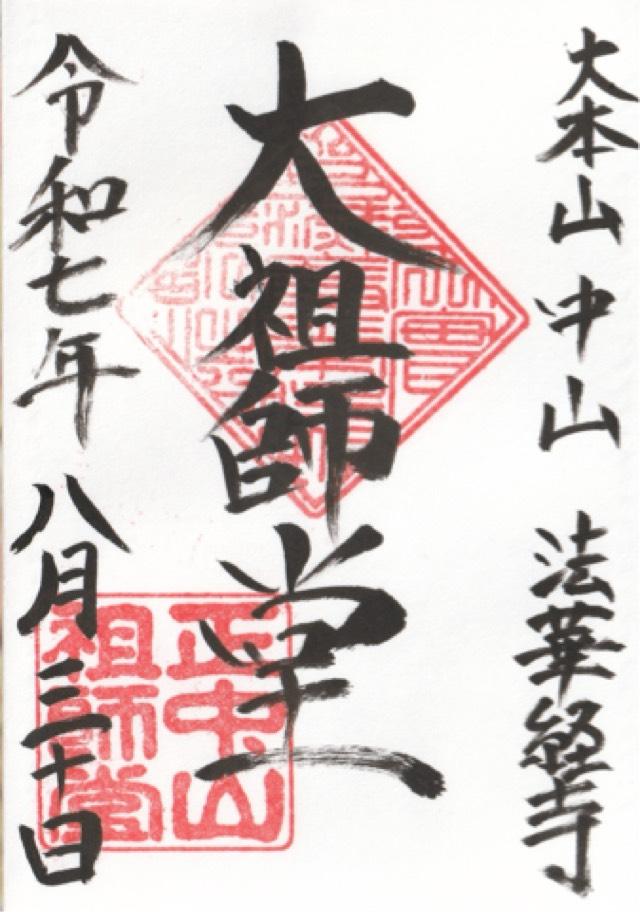 大本山中山 法華経寺
大祖師堂
令和七年 八月三十日
正中山
祖師堂